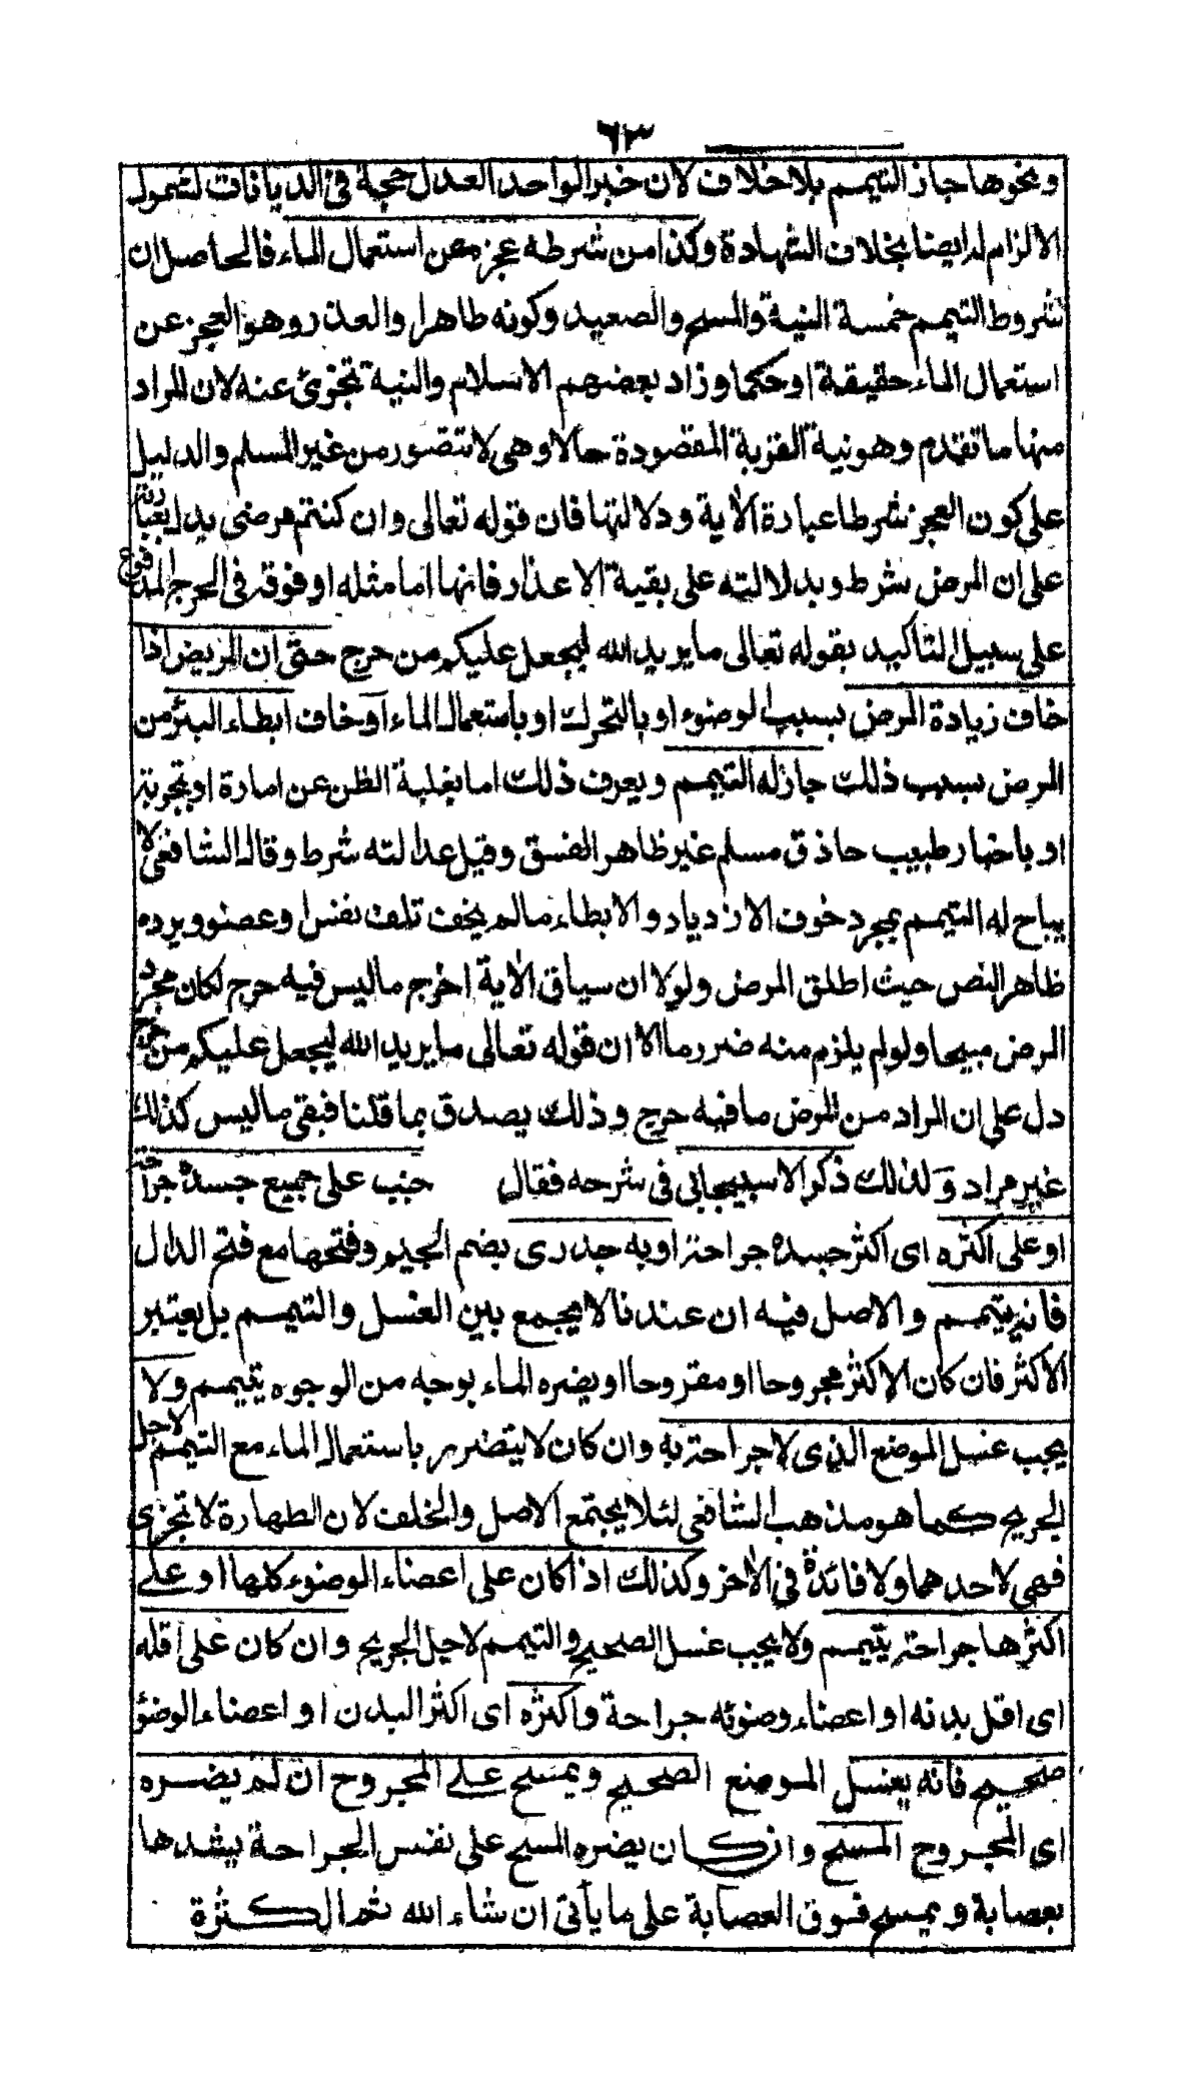 ٦٣
ونحوها جاز التيمم بلا خلاف لان خبر الواحد العدل حجة في الديانات لشمول
الالزام له ايضا بخلاف الشهادة وكذا من شرطه عجزه عن استعمال الماء فالحاصل ان
شروط التيمم خمسة النية والمسح والصعيد وكونه طاهرا والعذر وهو العجز عن
استعمال الماء حقيقة او حكما وزاد بعضهم الاسلام والنية تجزئ عنه لان المراد
منها ما تقدم وهو نية القربة المقصودة حالا وهى لا تتصور من غير المسلم والدليل
على كون العجز شرطا عبارة الآية ودلالتها فان قوله تعالى وان كنتم مرضى يدل بعبارته
على ان المرض شرط وبدلالته على بقية الاعذار فانها اما مثله او فوقه فى الحرج المدفوع
على سبيل التاكيد بقوله تعالى ما يريد الله ليجعل عليكم من حرج حتى ان المريض اذا
خاف زيادة المرض بسبب الوضوء او بالتحرك او باستعمال الماء او خاف ابطاء البئر من
المرض بسبب ذلك جاز له التيمم ويعرف ذلك اما بغلبة الظن عن امارة او تجربة
او باخبار طبيب حاذق مسلم غير ظاهر الفسق وقيل عدالته شرط وقال الشافعى لا
يباح له التيمم بمجرد خوف الازدياد والابطاء ما لم يخف تلف نفس او عضو ويرده
ظاهر النص حيث اطلق المرض ولولا ان سياق الآية اخرج ما ليس فيه حرج لكان مجرد
المرض مبيحا ولو لم يلزم منه ضرر ما الا ان قوله تعالى ما يريد الله ليجعل عليكم من حرج
دل على ان المراد من المرض ما فيه حرج وذلك يصدق بما قلنا فبقى ما ليس كذلك
غير مراد ولذلك ذكر الاسبيجابى فى شرحه فقال جنب على جميع جسده جراحة
او على اكثره اى اكثر جسده جراحة او به جدرى بضم الجيم وفتحها مع فتح الدال
فانه يتيمم والاصل فيه ان عندنا لا يجمع بين الغسل والتيمم بل يعتبر
الاكثر فان كان الاكثر مجروحا او مقروحا او يضره الماء بوجه من الوجوه يتيمم ولا
يجب غسل الموضع الذى لا جراحة به وان كان لا يتضرر باستعمال الماء مع التيمم لاجل
الجريح كما هو مذهب الشافعى لئلا يجتمع الاصل والخلف لان الطهارة لا تتجزى
فهى لاحدهما ولا فائدة فى الآخر وكذلك اذا كان على اعضاء الوضوء كلها او على
اكثرها جراحة يتيمم ولا يجب غسل الصحيح والتيمم لاجل الجريح وان كان على اقله
اى اقل بدنه او اعضاء وضوئه جراحة واكثره اى اكثر البدن او اعضاء الوضؤ
صحيح فانه يغسل الموضع الصحيح ويمسح على المجروح ان لم يضره
اى المجروح المسح وان كان يضره المسح على نفس الجراحة يشدها
بعصابة ويمسح فوق العصابة على ما يأتى ان شاء الله ثم الكثرة